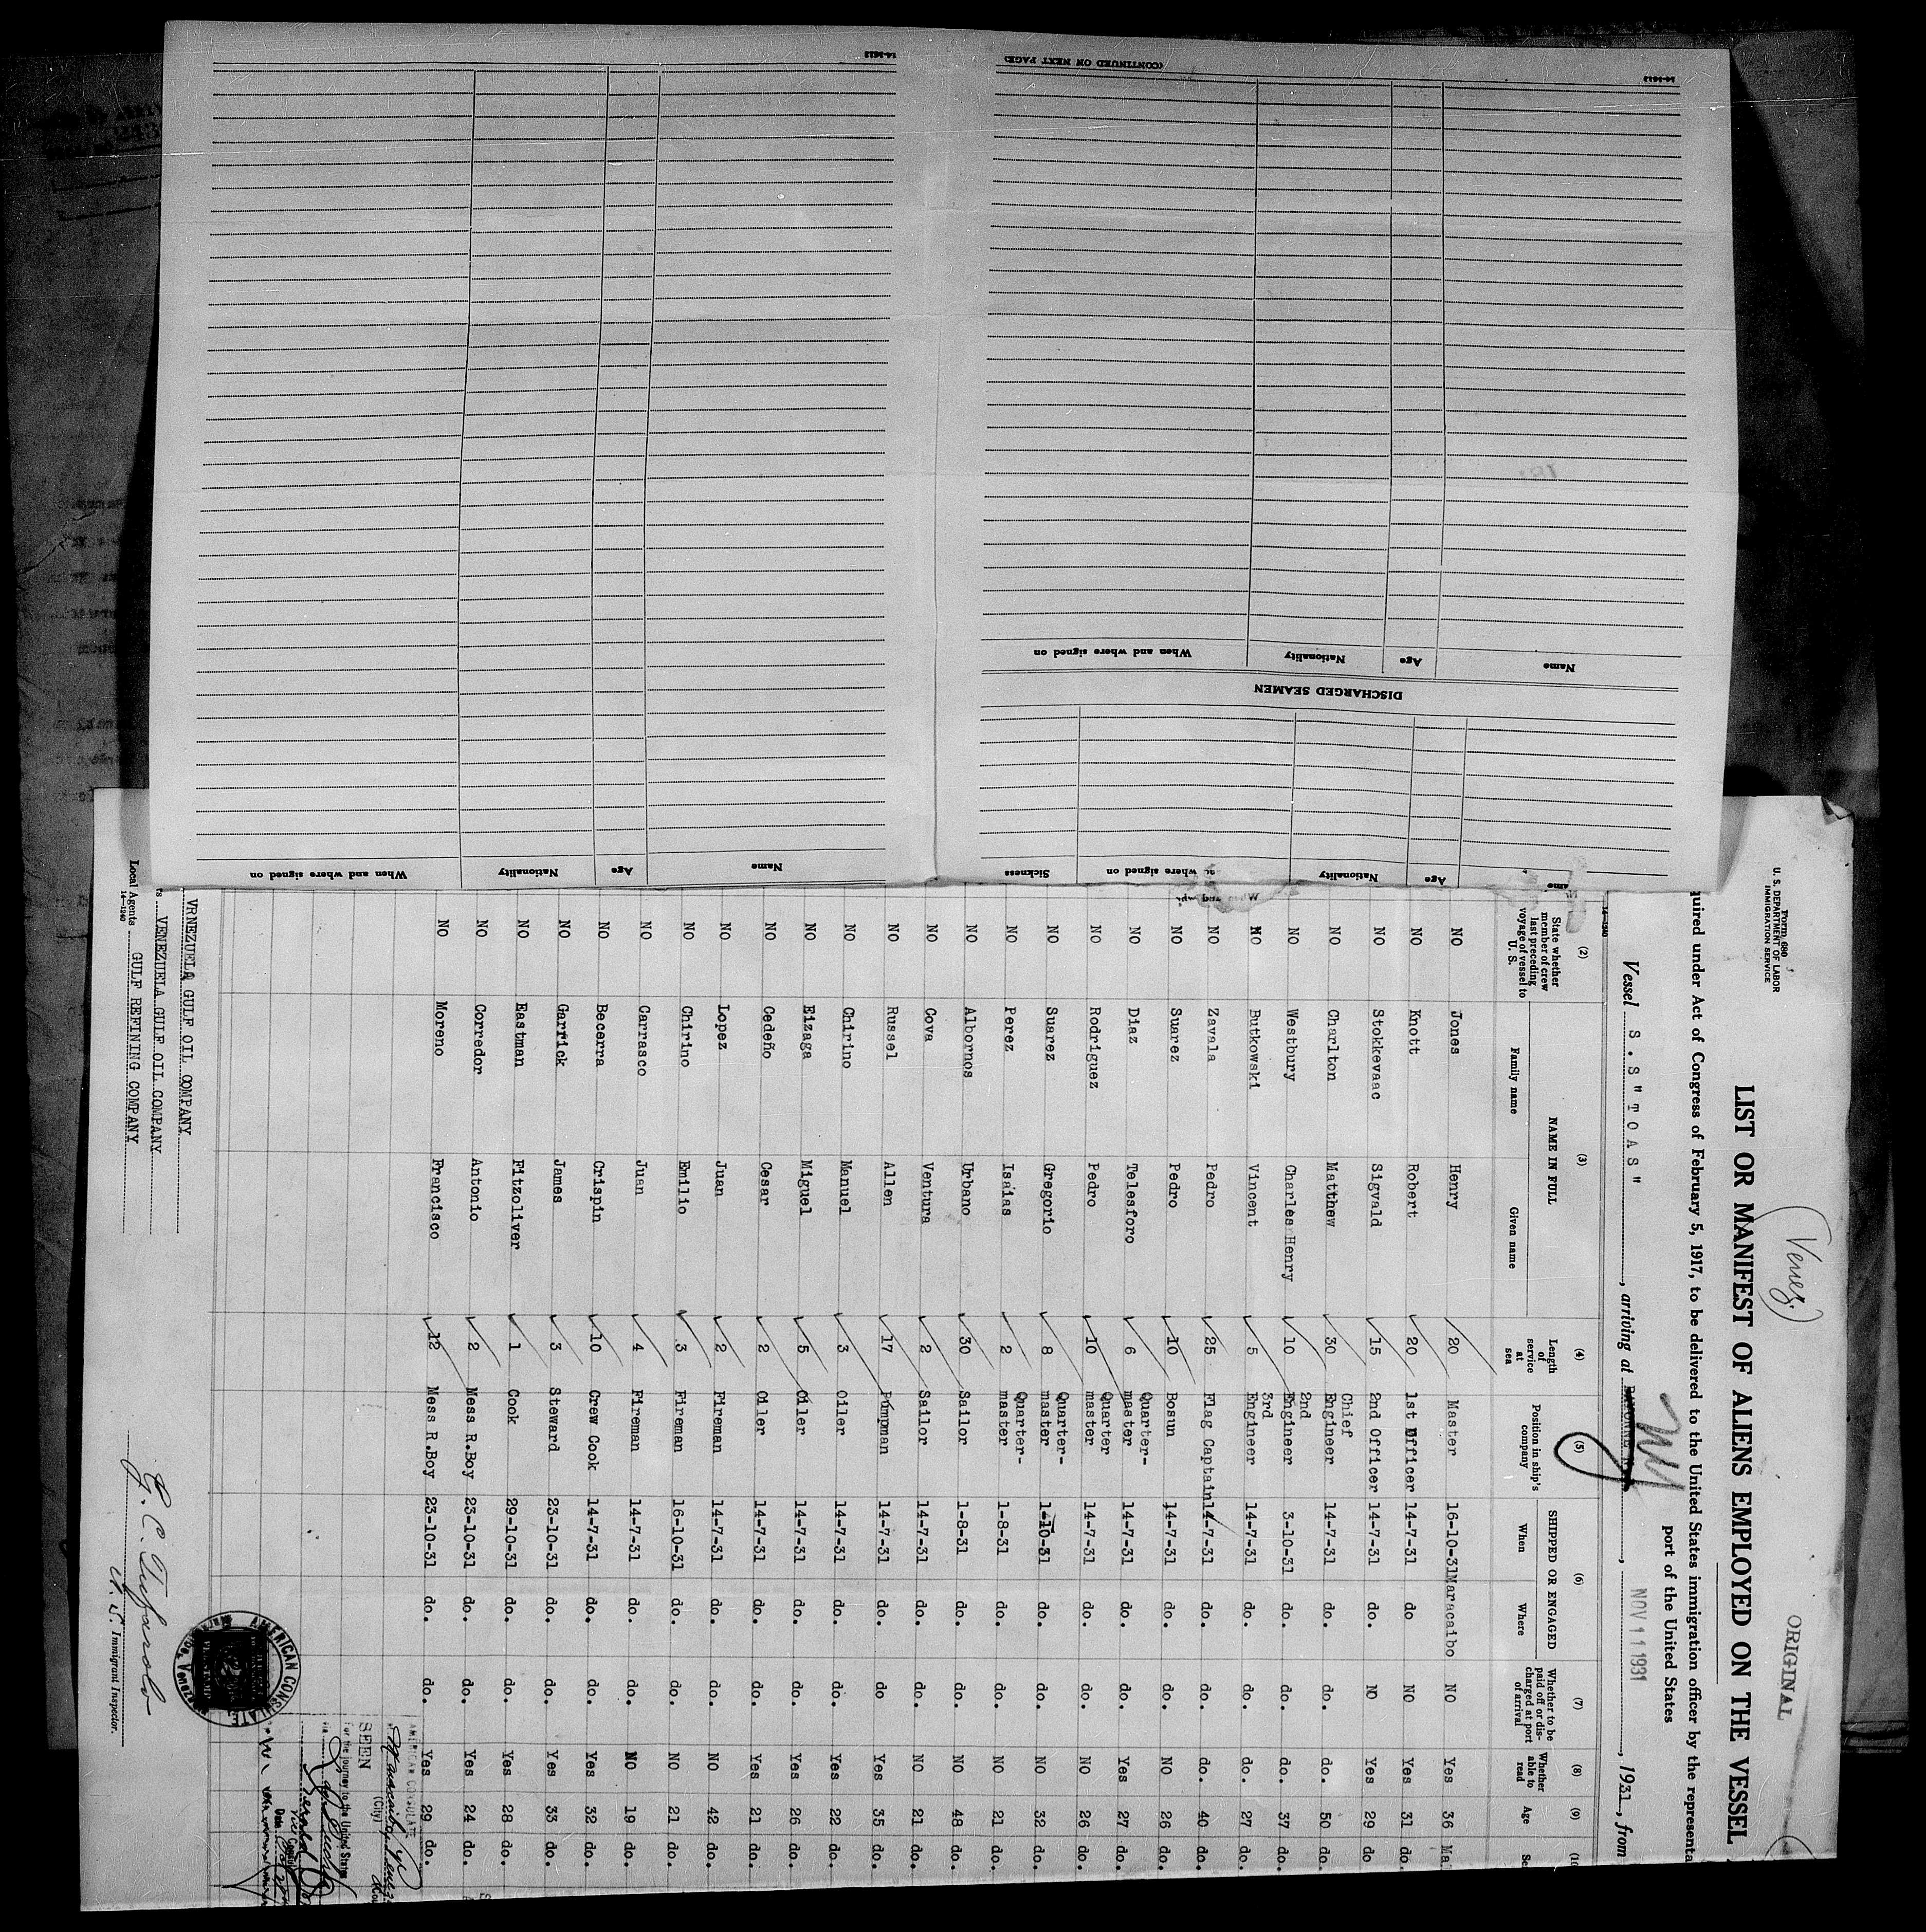 14-1613
(CONTINUED ON NEXT PAGE)
14-1613
When and where signed on
Nationality
Age
Name
DISCHARGED SEAMEN
Name
Age
Nationality
When and where signed on
Sickness
Name
Age
Nationality
When and where signed on
Form 680
U. S. DEPARTMENT OF LABOR
IMMIGRATION SERVICE
(Venez.)
ORIGINAL
LIST OR MANIFEST OF ALIENS EMPLOYED ON THE VESSEL
quired under Act of Congress of February 5, 1917, to be delivered to the United States immigration officer by the representa
port of the United States
Vessel S.S "TOAS", arriving at NOV 11 1931, 1931, from
14-1240
(2) (3) (4) (5) (6) (7) (8) (9) (10
State whether member of crew last preceding voyage of vessel to U. S.
NAME IN FULL
Family name Given name
Length of service at sea
Position in ship's company
SHIPPED OR ENGAGED
When Where
Whether to be paid off or discharged at port of arrival
Whether able to read
Age
Se
NO Jones Henry 20 Master 16-10-31 Maracaibo NO Yes 36 Ma
NO Knott Robert 20 1st Officer 14-7-31 do NO Yes 31 do.
NO Stokkevaac Sigvald 15 2nd Officer 14-7-31 do. NO Yes 29 do
NO Charlton Matthew 30 Chief Engineer 14-7-31 do. do. do. 50 do.
NO Westbury Charles Henry 10 2nd Engineer 3-10-31 do. do. do. 37 do.
NO Butkowski Vincent 5 3rd Engineer 14-7-31 do. do. do. 27 do.
NO Zavala Pedro 25 Flag Captain 14-7-31 do. do. do. 40 do.
NO Suarez Pedro 10 Bosun 14-7-31 do. do. NO 26 do.
NO Diaz Telesforo 6 Quarter-master 14-7-31 do. do. Yes 27 do.
NO Rodriguez Pedro 10 Quarter master 14-7-31 do. do. NO 26 do.
NO Suarez Gregorio 8 Quarter-master 1-10-31 do. do. NO 32 do.
NO Perez Isaias 2 Quarter-master 1-8-31 do. do. NO 21 do.
NO Albornos Urbano 30 Sailor 1-8-31 do. do. NO 48 do.
NO Cova Ventura 2 Sailor 14-7-31 do. do. NO 21 do.
NO Russel Allen 17 Pumpman 14-7-31 do. do Yes 35 do.
NO Chirino Manuel 3 Oiler 14-7-31 do. do. Yes 22 do.
NO Eizaga Miguel 5 Oiler 14-7-31 do. do. Yes 26 do.
NO Cedeño Cesar 2 Oiler 14-7-31 do. do. Yes 21 do.
NO Lopez Juan 2 Fireman 14-7-31 do. do. NO 42 do.
NO Chirino Emilio 3 Fireman 16-10-31 do. do. NO 21 do.
NO Carrasco Juan 4 Fireman 14-7-31 do. do. NO 19 do.
NO Becerra Crispin 10 Crew Cook 14-7-31 do. do. Yes 32 do.
NO Garrick James 3 Steward 23-10-31 do. do. Yes 33 do.
NO Eastman Fitzoliver 1 Cook 29-10-31 do. do. Yes 28 do.
NO Corredor Antonio 2 Mess R.Boy 23-10-31 do. do. Yes 24 do.
NO Moreno Francisco 12 Mess R.Boy 23-10-31 do. do. Yes 29 do.
AMERICAN CONSULATE
(City)
SEEN
For the journey to the United States
Date
AMERICAN CONSULATE
VRNEZUELA GULF OIL COMPANY
rs VENEZUELA GULF OIL COMPANY
Local Agents GULF REFINING COMPANY
14-1240
Immigrant Inspector.